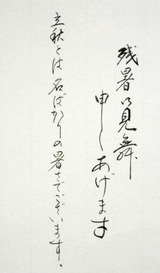 残暑お見舞
申しあげます
立秋とは名ばかりの暑さでございます。